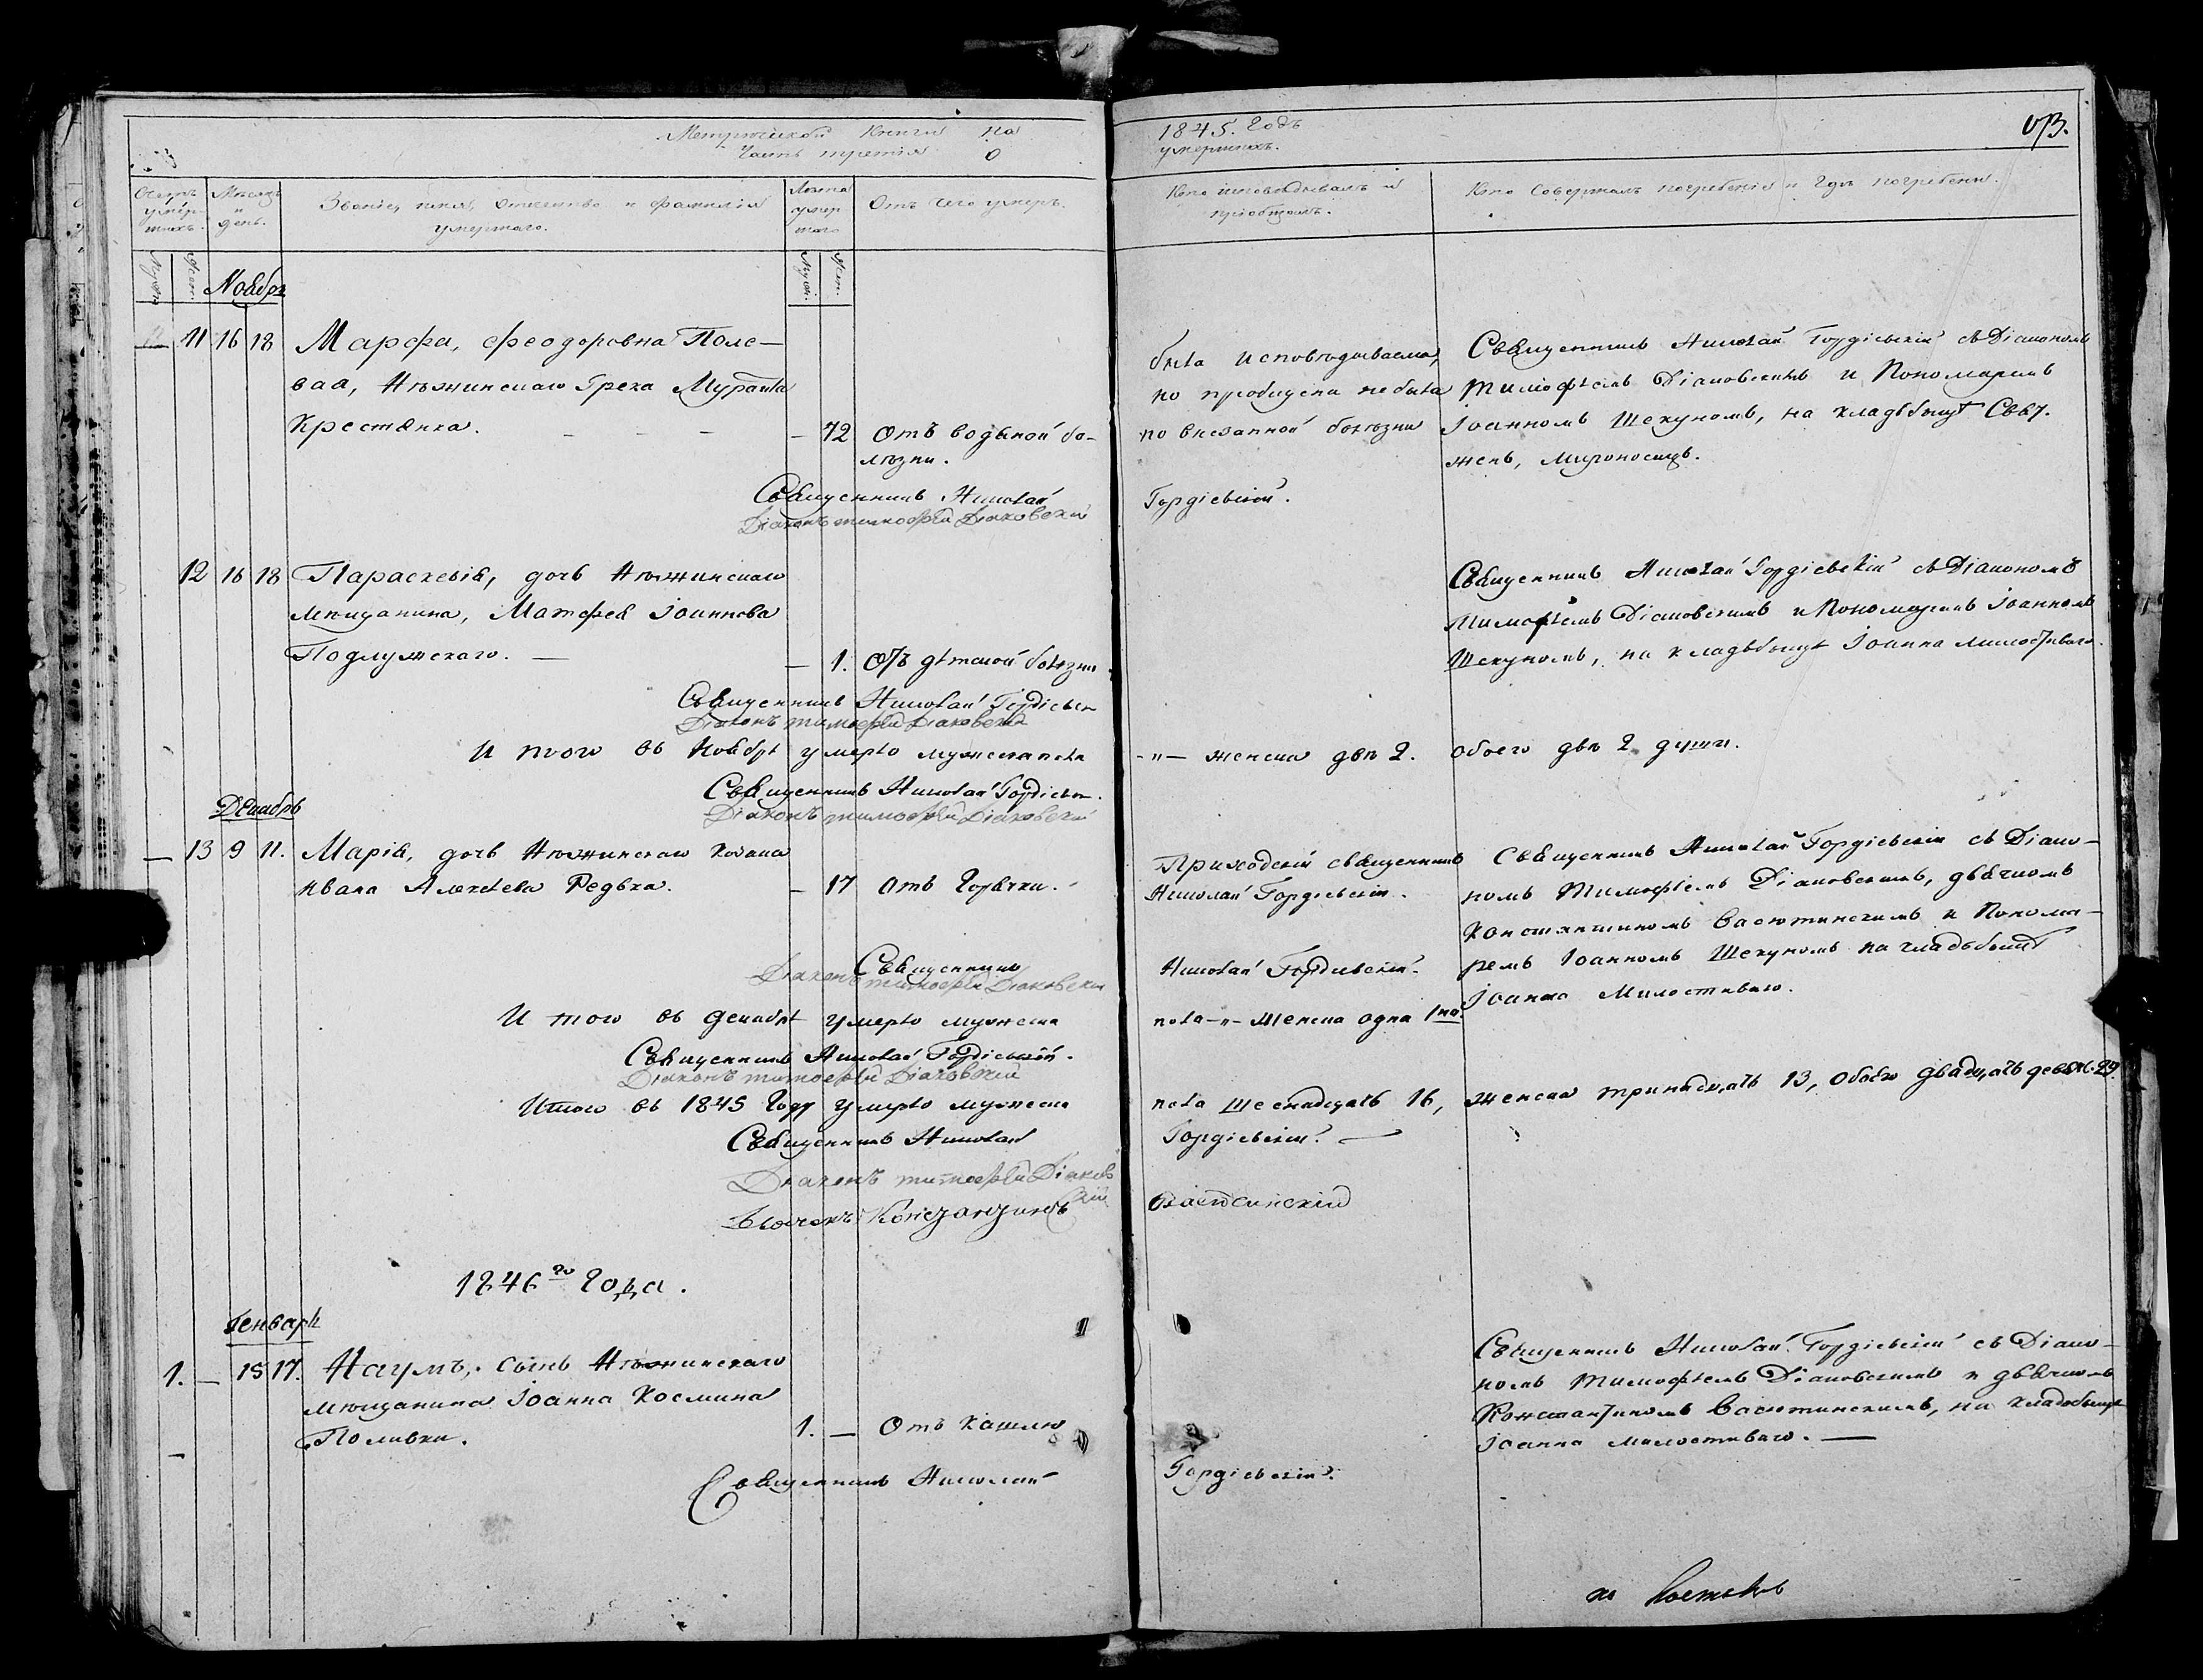 Метрической Книги на
Часть третія о
1845. Годъ
умершихъ.
Счетъ умер-шихъ.
Мѣсяцъ и день.
Званіе, имя, отчество и фамилія
умершаго.
Лѣта умер-шаго
Отъ чего умеръ.
Кто исповѣдывалъ и
пріобщалъ.
Кто совершалъ погребеніе и гдѣ погребены.
Муж. Жен.
Муж. Жен.
Ноябрь
11 16 18 Марфа, Феодоровна Поле-
вая, Нѣжинскаго Грека
Крестянка. - - - - 72 Отъ водяной бо-
лѣзни.
была исповѣдываема,
но пріобщена не была
по внезапной болѣзни
Священникъ Николай Гордіевскій съ Діакономъ
Тимофѣемъ Діаковскимъ и Пономаремъ
Іоанномъ Шекуномъ, на кладбищѣ Свят.
женъ, Мироносицъ.
Священникъ Николай Гордіевскій.
Діаконъ Тимофей Діаковскій
12 16 18 Параскевія, дочь Нѣжинскаго
мѣщанина, Матфея Іоаннова
Подлужскаго. — — 1. Отъ дѣтской болѣзни
Священникъ Николай Гордіевскій съ Діакономъ
Тимофѣемъ Діаковскимъ и Пономаремъ Іоанномъ
Шекуномъ, на кладбищѣ Іоанна Милостиваго.
Священникъ Николай Гордіевск
Діаконъ Тимофей Діаковскій
И того въ Ноябрѣ умерло мужеска пола -"- женска двѣ 2. обоего двѣ 2 души.
Священникъ Николай Гордіевск.
Діаконъ Тимофей Діаковскій
Декабрь
— 13 9 11. Марія, дочь Нѣжинскаго козака
Ивана Алексѣева Редька. — 17 Отъ Горячки.
Приходскій священникъ
Николай Гордіевскій.
Священникъ Николай Гордіевскій съ Діако-
номъ Тимофѣемъ Діаковскимъ, дьячкомъ
Константиномъ Васютинскимъ и Понома-
ремъ Іоанномъ Шекуномъ на кладбищѣ
Іоанна Милостиваго.
Священникъ Николай Гордіевскій.
Діаконъ Тимофей Діаковскій
И того въ Декабрѣ умерло мужеска пола -"- женска одна 1на.
Священникъ Николай Гордіевскій.
Діаконъ Тимофей Діаковскій
Итого въ 1845 Году умерло мужеска пола шеснадцать 16, женска тринадцать 13, обоего двадцать девять 29.
Священникъ Николай Гордіевскій. —
Діаконъ Тимофей Діаковскій
Дьячокъ Константинъ Васютинскій
1846го Года.
Генварь
1. — 15 17. Наумъ, сынъ Нѣжинскаго
мѣщанина Іоанна Космина
Поливки. 1. — Отъ Кашлю
Священникъ Николай Гордіевскій съ Діако-
номъ Тимофѣемъ Діаковскимъ и дьячкомъ
Константиномъ Васютинскимъ, на кладбищѣ
Іоанна Милостиваго. —
Священникъ Николай Гордіевскій.